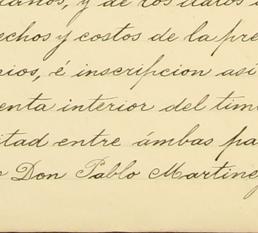 y de los
echos y costos de la pre
cios, é inscripcion asi
enta interior del tim
itad entre ámbas pa
Don Pablo Martinez